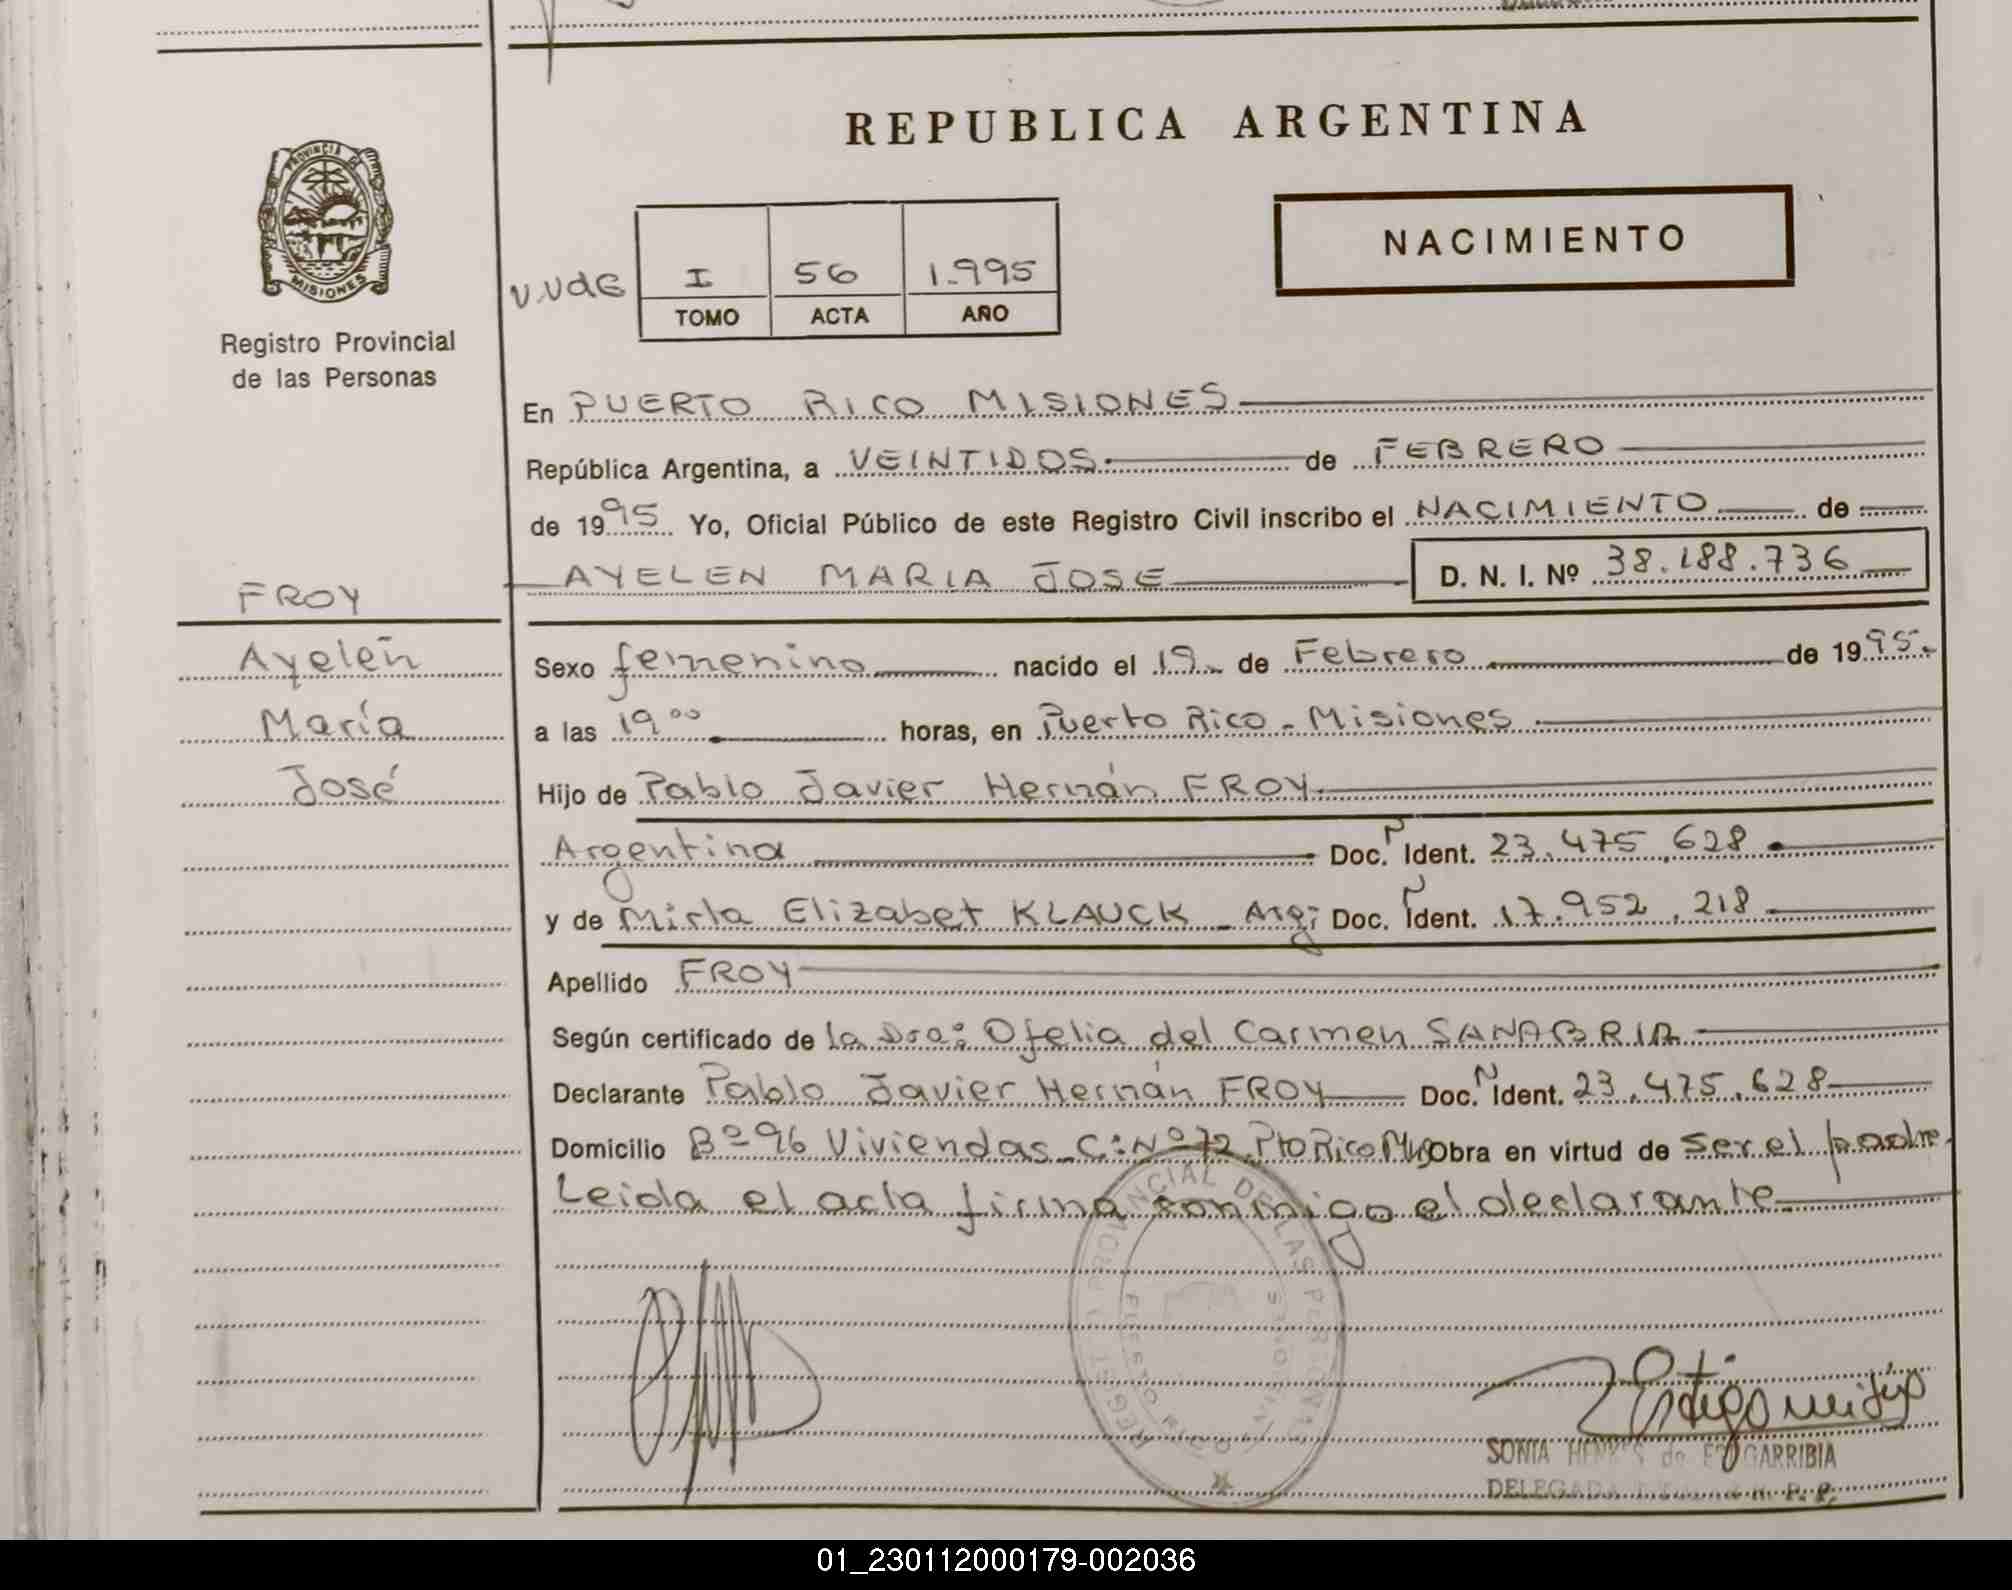 REPUBLICA ARGENTINA
PROVINCIA DE
MISIONES
Registro Provincial
de las Personas
NACIMIENTO
I 56 1.995
TOMO ACTA AÑO
En PUERTO RICO MISIONES
República Argentina, a VEINTIDOS de FEBRERO
de 1995 Yo, Oficial Público de este Registro Civil inscribo el NACIMIENTO de
AYELEN MARIA JOSE D. N. I. Nº 38.188.736
FROY
Ayelén
María
José
Sexo femenino nacido el 19 de Febrero de 1995.
a las 19 00 horas, en Puerto Rico - Misiones
Hijo de Pablo Javier Hernán FROY
Argentina Doc. N Ident. 23.475.628
y de Mirla Elizabet KLAUCK - Arg; Doc. N Ident. 17.952.218
Apellido FROY
Según certificado de la Dra: Ofelia del Carmen SANABRIA
Declarante Pablo Javier Hernán FROY Doc. N Ident. 23.475.628
Domicilio Bº 96 Viviendas - C: Nº 72 Pto Rico Obra en virtud de ser el padre.
Leida el acta firma conmigo el declarante
REGIST PROVINCIAL DE LAS PERSONAS
PUERTO RICO MISIONES
SONIA de GARRIBIA
DELEGADA R. P. P.
01_230112000179-002036